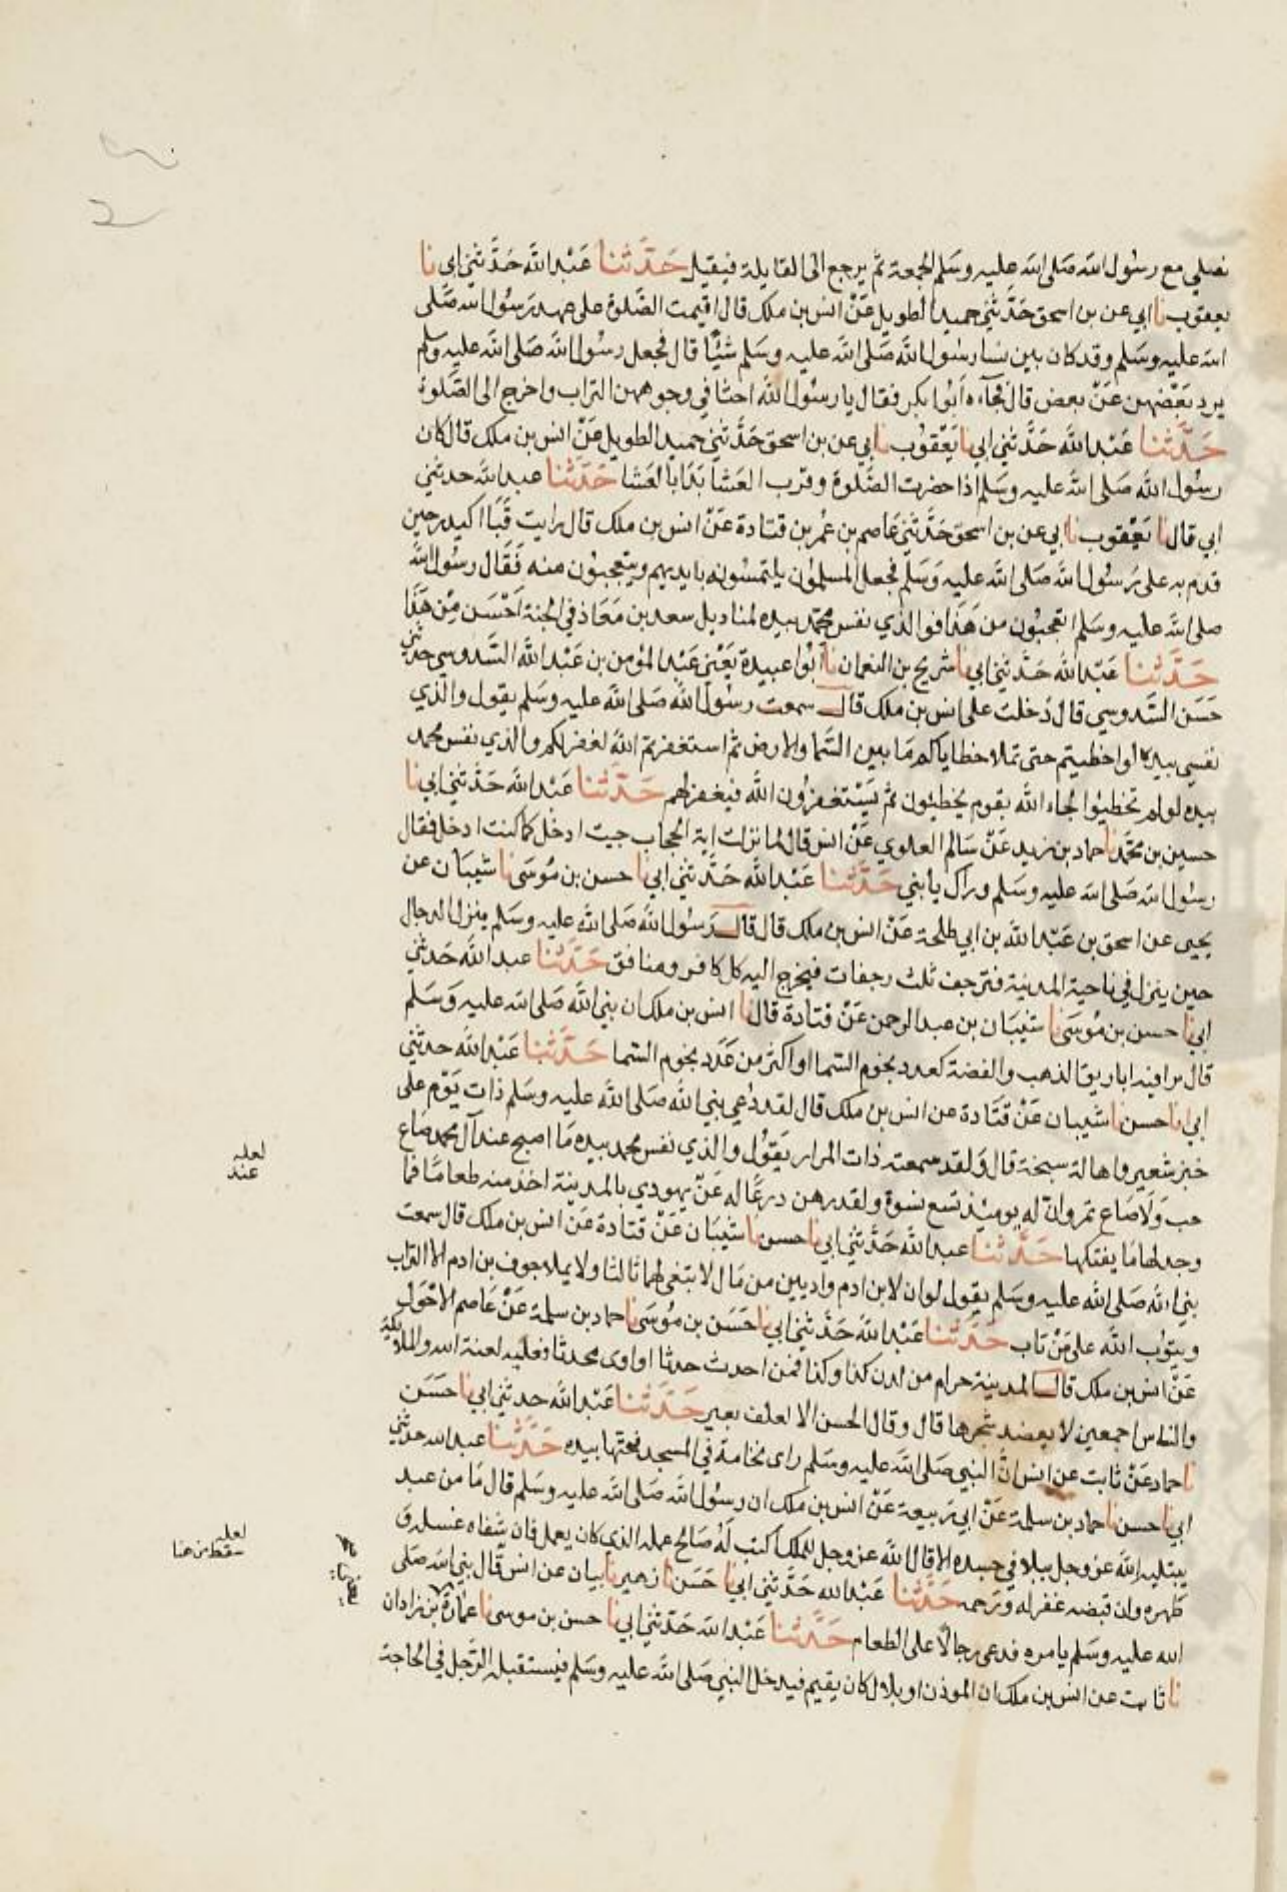 نصلي مع رسول الله صلى الله عليه وسلم الجمعة ثم يرجع الى القايلة فيقيل حدثنا عبد الله حدثني ابي نا
يعقوب نا ابي عن بن اسحق حدثني حميد الطويل عن انس بن ملك قال اقيمت الصلوة على عهد رسول الله صلى
الله عليه وسلم وقد كان بين نسا رسول الله صلى الله عليه وسلم شيًا قال فجعل رسول الله صلى الله عليه وسلم
يرد بعضهن عن بعض قال فجآءه ابوا بكر فقال يا رسول الله احثا في وجوههن التراب واخرج الى الصلوة
حدثنا عبد الله حدثني ابي نا يعقوب نا ابي عن بن اسحق حدثني حميد الطويل عن انس بن ملك قال كان
رسول الله صلى الله عليه وسلم اذا حضرت الصلوة وقرب العشا بدا بالعشا حدثنا عبد الله حدثني
ابي قال نا يعقوب نا ابي عن بن اسحق حدثني عاصم بن عمر بن قتادة عن انس بن ملك قال رايت قبا اكيدر حين
قدم به على رسول الله صلى الله عليه وسلم فجعل المسلمون يلتمسونه بايديهم ويتعجبون منه فقال رسول الله
صلى الله عليه وسلم اتعجبون من هذا فوالذي نفس محمد بيده لمناديل سعد بن معاذ في الجنة احسن من هذا
حدثنا عبد الله حدثني ابي نا شريح بن النعمان نا ابوا عبيدة يعني عبد المؤمن بن عبد الله السدوسي حدثني
حسن السدوسي قال دخلت على انس بن ملك قال سمعت رسول الله صلى الله عليه وسلم يقول والذي
نفسي بيده لوا خطيتم حتى تملا خطاياكم ما بين السما والارض ثم استغفرتم الله لغفر لكم والذي نفس محمد
بيده لو لم تخطيوا لجاء الله بقوم يخطيون ثم يستغفرون الله فيغفر لهم حدثنا عبد الله حدثني ابي نا
حسين بن محمد نا حماد بن زيد عن سالم العلوي عن انس قال لما نزلت اية الحجاب جيت ادخل كما كنت ادخل فقال
رسول الله صلى الله عليه وسلم وراك يا بني حدثنا عبد الله حدثني ابي نا حسن بن موسى نا شيبان عن
يحيى عن اسحق بن عبد الله بن ابي طلحة عن انس بن ملك قال قال رسول الله صلى الله عليه وسلم ينزل الدجال
حين ينزل في ناحية المدينة فترجف ثلث رجفات فيخرج اليه كل كافر ومنافق حدثنا عبد الله حدثني
ابي نا حسن بن موسى نا شيبان بن عبد الرحمن عن قتادة قال نا انس بن ملك ان نبي الله صلى الله عليه وسلم
قال يرا فيه اباريق الذهب والفضة كعدد نجوم السما او اكثر من عدد نجوم السما حدثنا عبد الله حدثني
ابي نا حسن نا شيبان عن قتادة عن انس بن ملك قال لقد دعي نبي الله صلى الله عليه وسلم ذات يوم على
خبز شعير واهالة سنخة قال ولقد سمعته ذات المرار يقول والذي نفس محمد بيده ما اصبح عند آل محمد صاع
حب ولا صاع تمر وان له يوميذ تسع نسوة ولقد رهن درعًا له عن يهودي بالمدينة اخذ منه طعامًا فما
وجد لها ما يفتكها حدثنا عبد الله حدثني ابي نا حسن نا شيبان عن قتادة عن انس بن ملك قال سمعت
نبي الله صلى الله عليه وسلم يقول لو ان لابن ادم واديين من مال لابتغى لهما ثالثا ولا يملا جوف بن ادم الا التراب
ويتوب الله على من تاب حدثنا عبد الله حدثني ابي نا حسن بن موسى نا حماد بن سلمة عن عاصم الاحول
عن انس بن ملك قال المدينة حرام من لدن كذا وكذا فمن احدث حدثا او اوى محدثا فعليه لعنة الله والملايكة
والناس اجمعين لا يعضد شجرها قال وقال الحسن الا لعلف بعير حدثنا عبد الله حدثني ابي نا حسن
نا حماد عن ثابت عن انس ان النبي صلى الله عليه وسلم راى نخامة في المسجد فحتها بيده حدثنا عبد الله حدثني
ابي نا حسن نا حماد بن سلمة عن ابي ربيعة عن انس بن ملك ان رسول الله صلى الله عليه وسلم قال ما من عبد
يبتليه الله عز وجل ببلا في جسده الا قال الله عز وجل للملك اكتب له صالح عمله الذي كان يعمل فان شفاه غسله ق
طهره وان قبضه غفر له ورحمه حدثنا عبد الله حدثني ابي نا حسن نا زهير نا بيان عن انس قال نبي الله صلى
الله عليه وسلم يامره فدعى رجالا على الطعام حدثنا عبد الله حدثني ابي نا حسن بن موسى نا عمارة بن زادان
نا ثابت عن انس بن ملك ان الموذن او بلال كان يقيم فيدخل النبي صلى الله عليه وسلم فيستقبله الرجل في الحاجة
لعله
عند
لعله
سقط من هنا